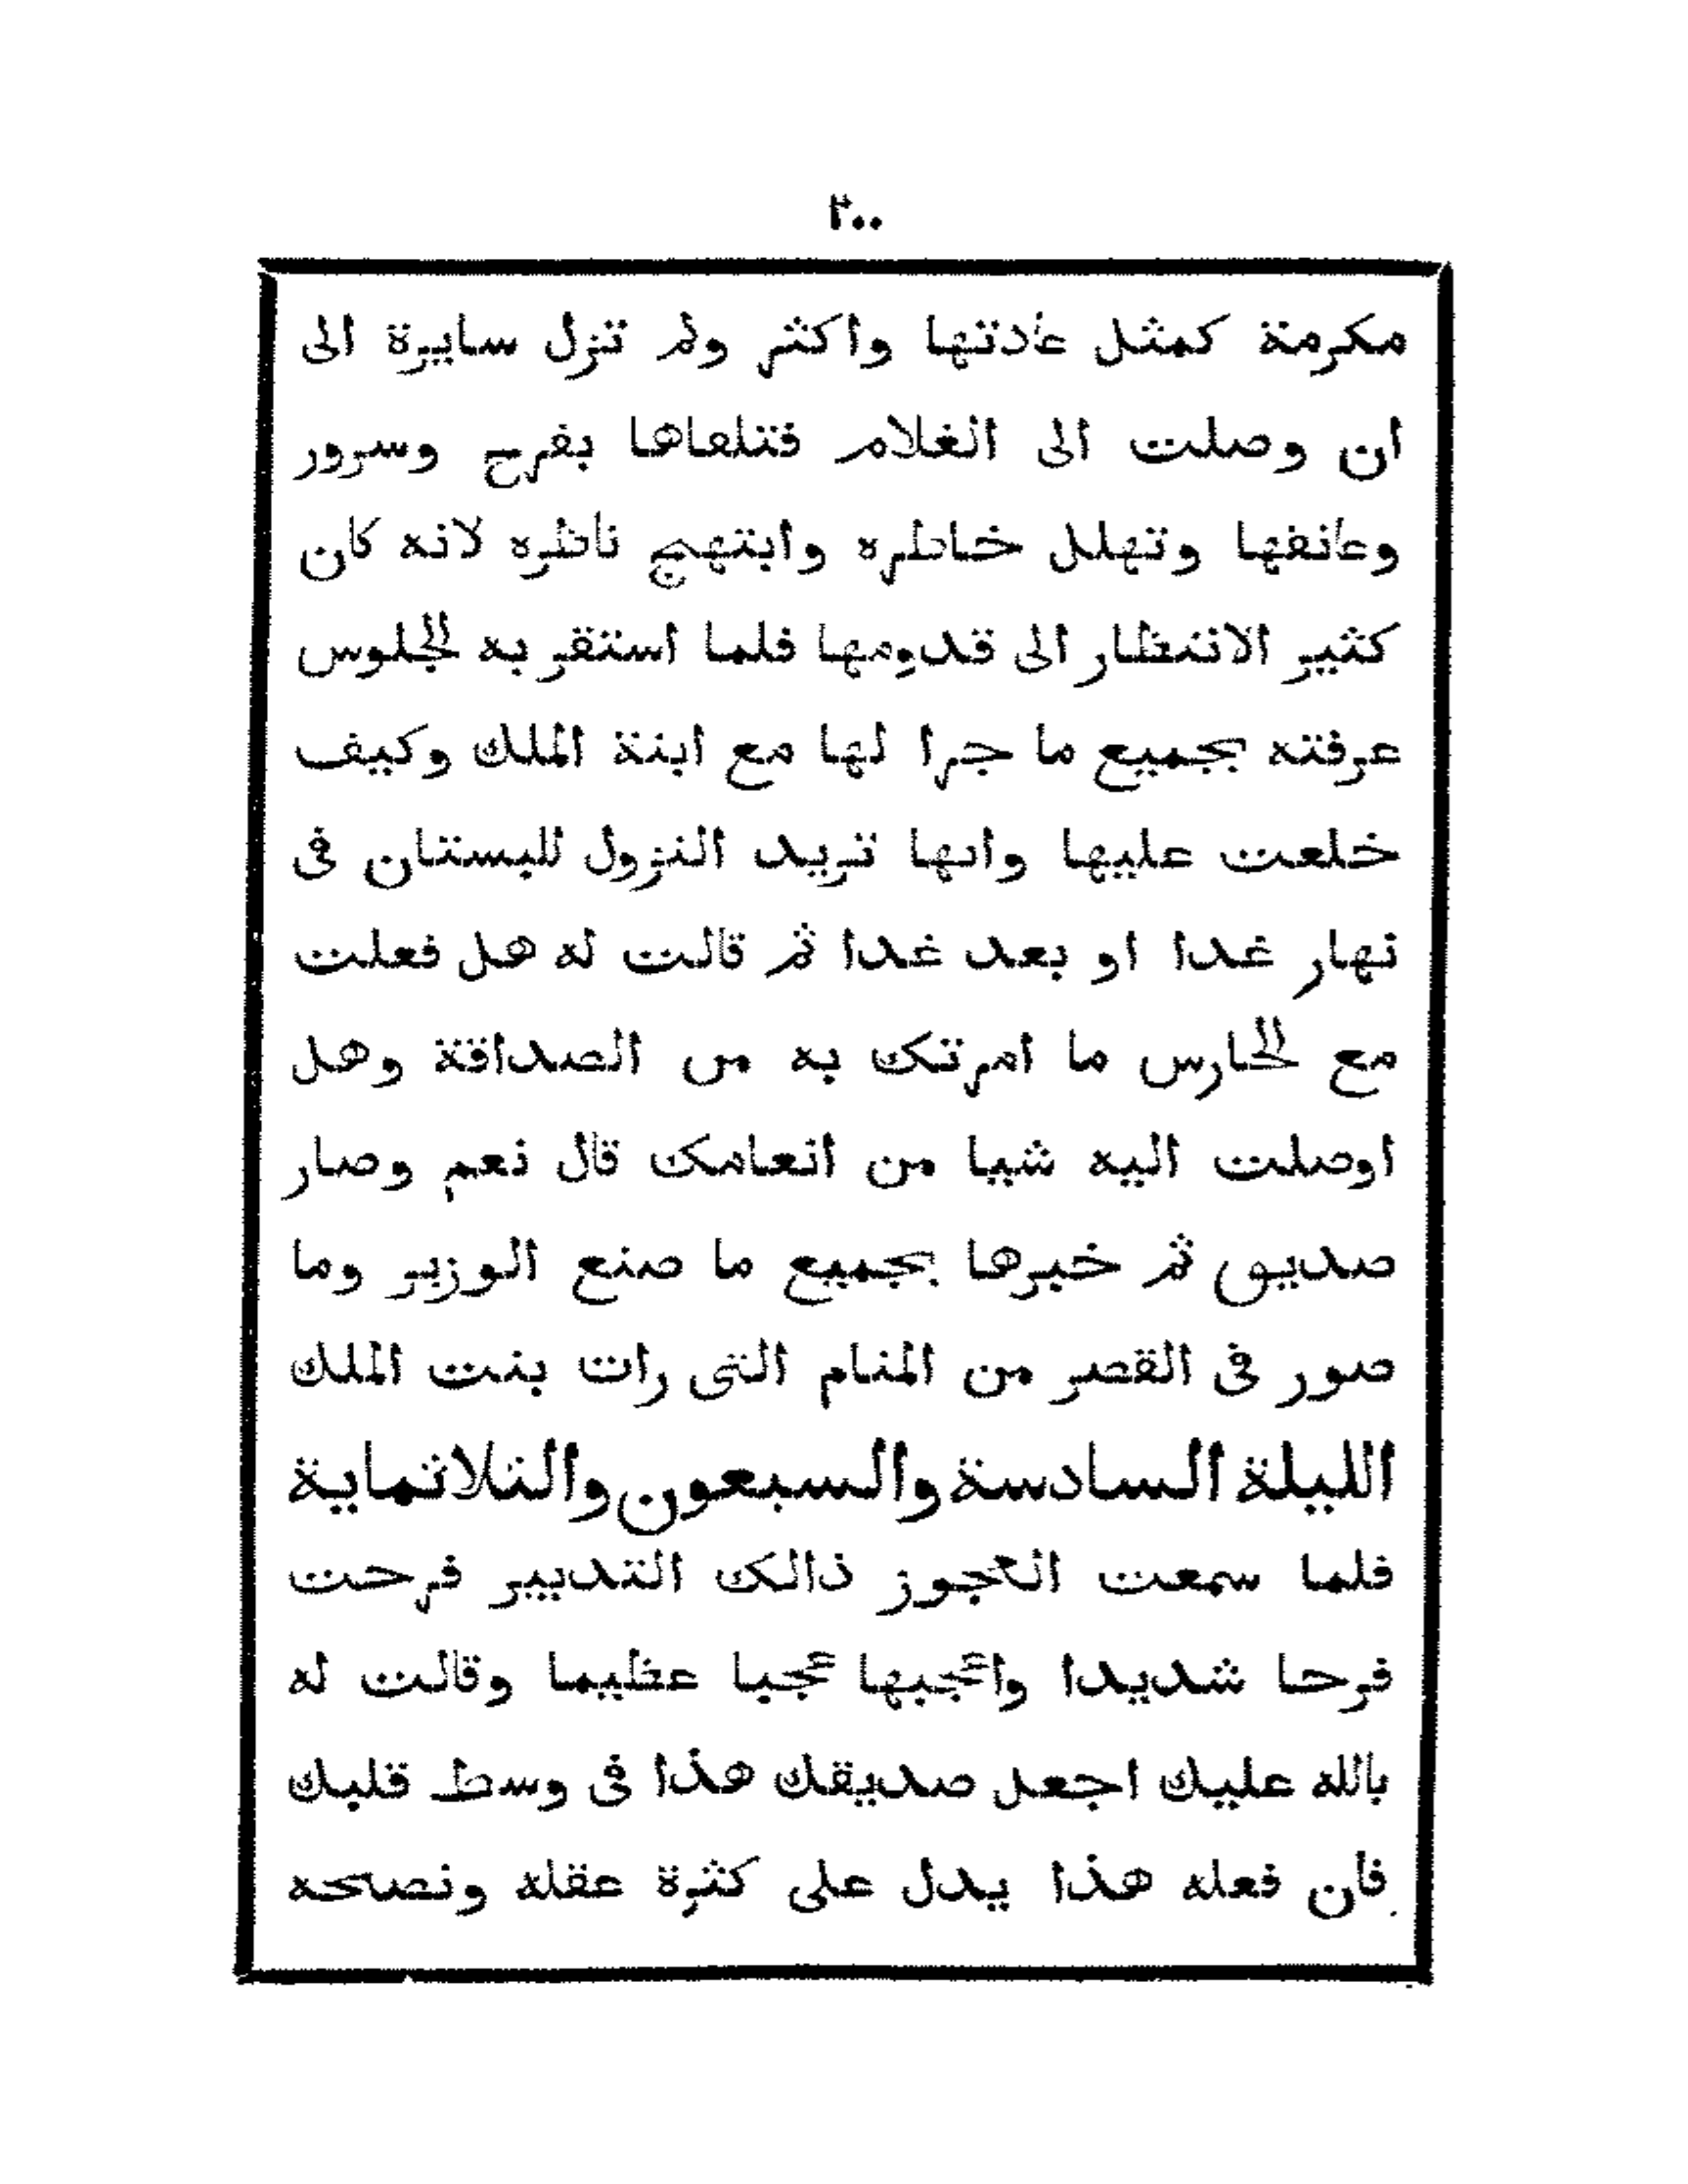 ٢٠٠
مكرمة كمثل عادتها واكثر ولم تزل سايرة الى
ان وصلت الى الغلام فتلقاها بفرح وسرور
وعانقها وتهلل خاطره وابتهج ناظره لانه كان
كثير الانتظار الى قدومها فلما استقر به الجلوس
عرفته بجميع ما جرا لها مع ابنة الملك وكيف
خلعت عليها وانها تريد النزول للبستان فى
نهار غدا او بعد غدا ثم قالت له هل فعلت
مع الحارس ما امرتك به من الصداقة وهل
اوصلت اليه شيا من انعامك قال نعم وصار
صديق ثم خبرها بجميع ما صنع الوزير وما
صور فى القصر من المنام التى رات بنت الملك
الليلة السادسة والسبعون والثلاثماية
فلما سمعت العجوز ذالك التدبير فرحت
فرحا شديدا واعجبها عجبا عظيما وقالت له
بالله عليك اجعل صديقك هذا فى وسط قلبك
فان فعله هذا يدل على كثرة عقله ونصحه